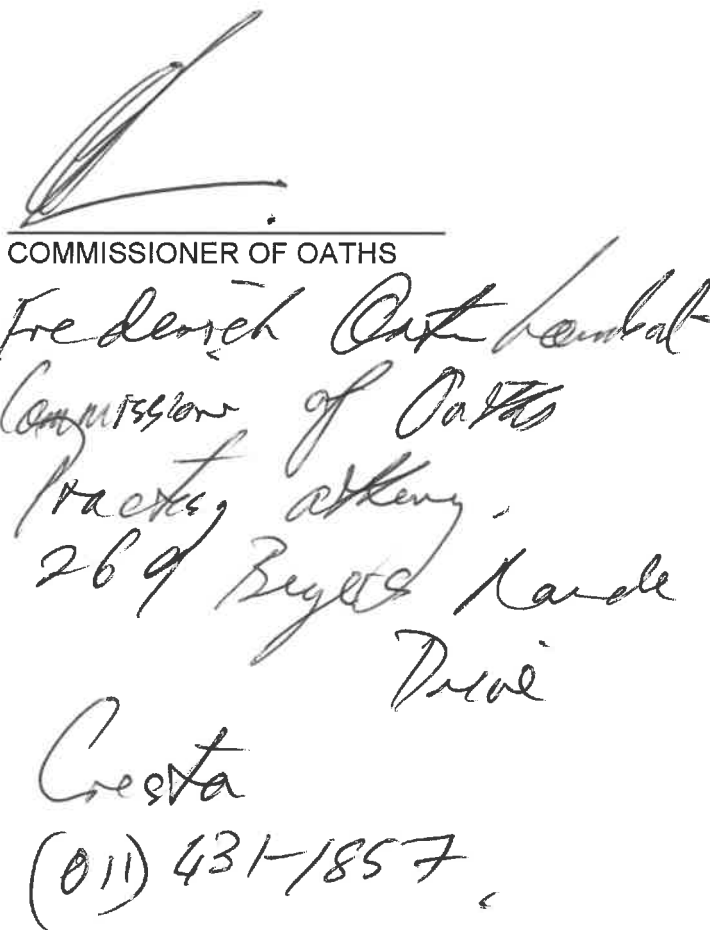 COMMISSIONER OF OATHS
Frederich
Commissioner of Oaths
Practising attorney.
269 Beyers Naude
Drive
Cresta
(011) 431-1857.